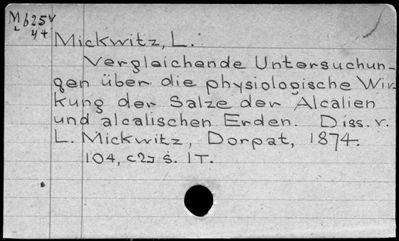 Mb25v
L
y+
Mickwitz, L.
Vergleichende Untersuchun-
gen über die physiologische Wir-
kung der Salze der Alcalien
und alcalischen Erden. Diss. v.
L. Mickwitz, Dorpat, 1874.
104, c2j S. 1T.